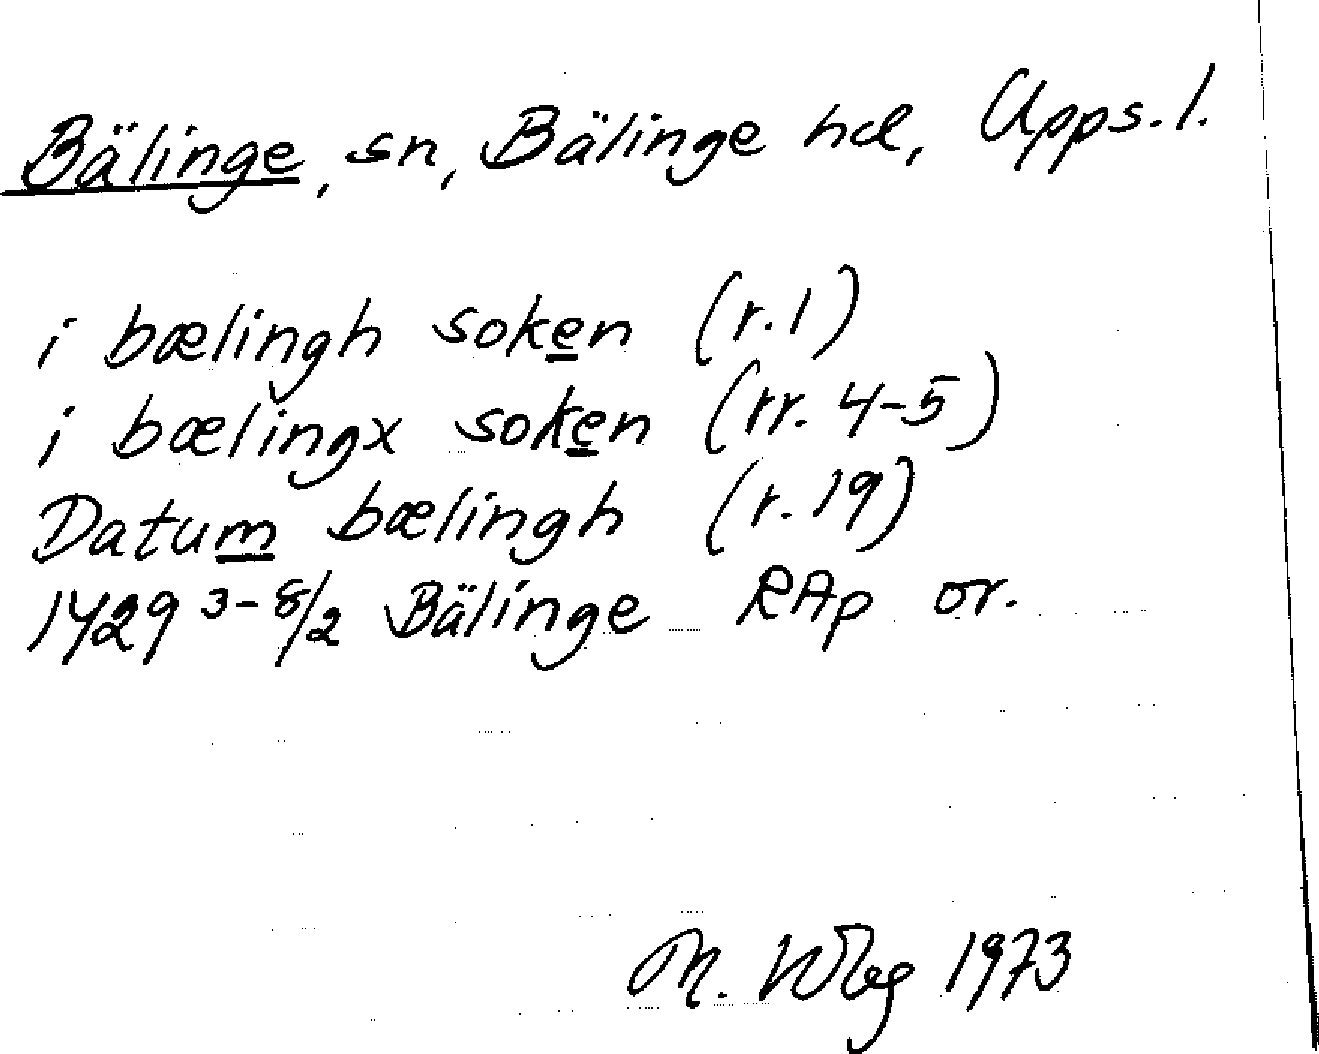 Bälinge, sn, Bälinge hd, Upps. l.
i bælingh soken (r. 1)
i bælingx soken (rr. 4-5)
Datum bælingh (r. 19)
1429 3-8/2 Bälinge RAp or.
M. Wbg 1973